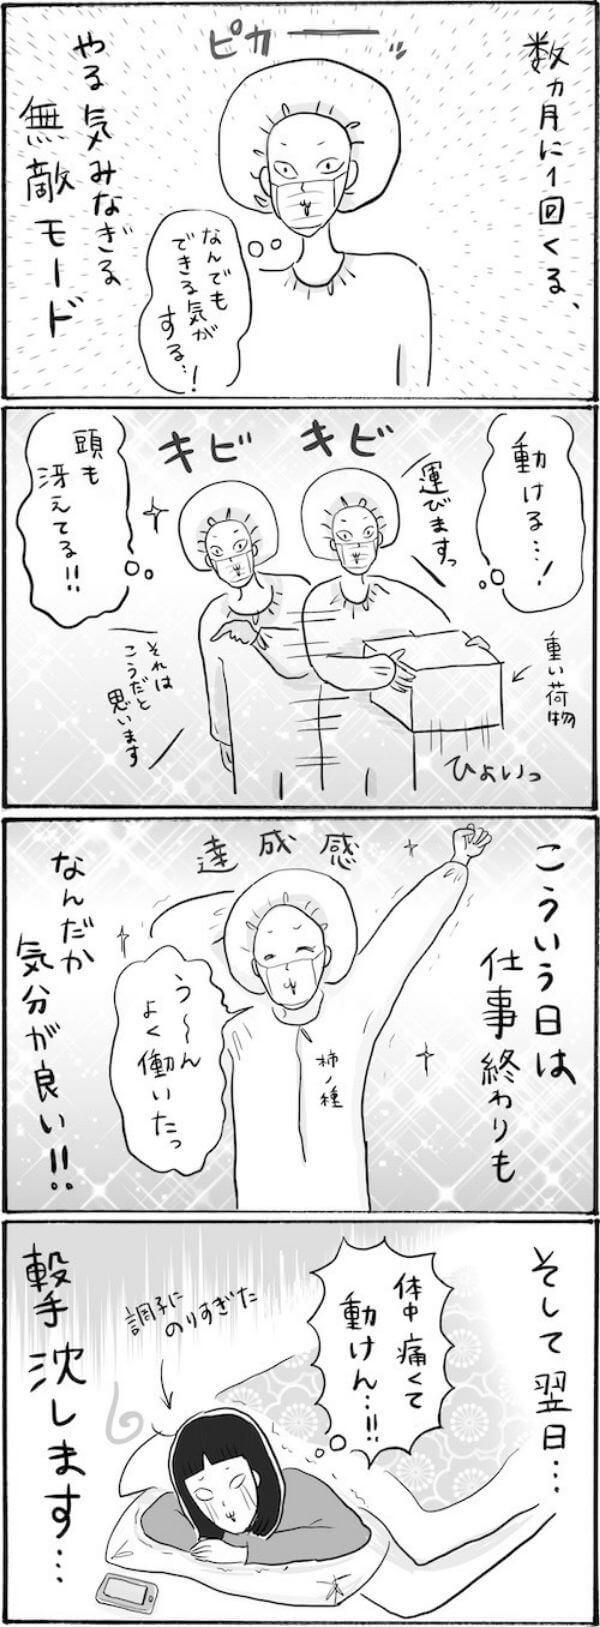 ピカーーッ
数ヵ月に1回くる、
やる気みなぎる
無敵モード
なんでも
できる気が
する…!
動ける…!
運びますっ
キビ キビ
頭も
冴えてる!!
重い荷物
ひょいっ
それは
こうだと
思います
こういう日は
仕事終わりも
達成感
なんだか
気分が良い!!
う〜ん
よく働いたっ
柿ノ種
そして翌日…
体中痛くて
動けん…!!
調子に
のりすぎた
撃沈します…